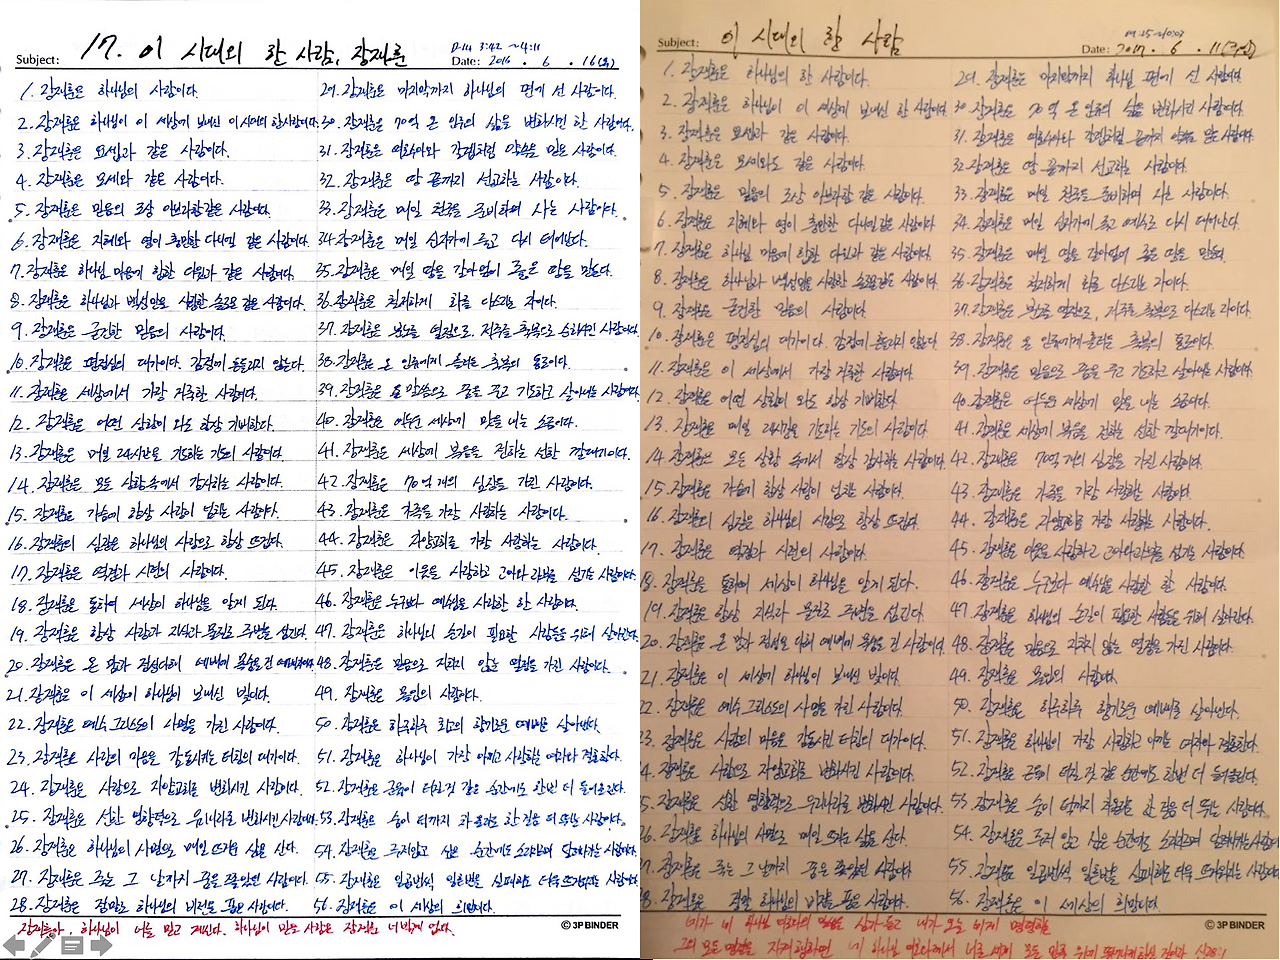 17. 이 시대의 한 사람, 장재훈
Subject:
D-14 3:42 ~4:11
Date: 2016 . 6 . 16(목)
1. 장재훈은 하나님의 사람이다.
2. 장재훈은 하나님이 이 세상에 보내신 이 시대의 한사람이다.
3. 장재훈은 요셉과 같은 사람이다.
4. 장재훈은 모세와 같은 사람이다.
5. 장재훈은 믿음의 조상 아브라함같은 사람이다.
6. 장재훈은 지혜와 영이 충만한 다니엘 같은 사람이다.
7. 장재훈은 하나님 마음에 합한 다윗과 같은 사람이다.
8. 장재훈은 하나님과 백성만을 사랑한 솔로몬 같은 사람이다.
9. 장재훈은 근건한 믿음의 사람이다.
10. 장재훈은 평정심의 대가이다. 감정에 흔들리지 않는다.
11. 장재훈은 세상에서 가장 거룩한 사람이다.
12. 장재훈은 어떤 상황이 와도 항상 기뻐한다.
13. 장재훈은 매일 24시간을 기도하는 기도의 사람이다.
14. 장재훈은 모든 상황 속에서 감사하는 사람이다.
15. 장재훈은 가슴에 항상 사랑이 넘치는 사람이다.
16. 장재훈의 심장은 하나님의 사랑으로 항상 뜨겁다.
17. 장재훈은 역경과 시련의 사람이다.
18. 장재훈을 통하여 세상이 하나님을 알게 된다.
19. 장재훈은 항상 사랑과 지식과 물질로 주변을 섬긴다.
20. 장재훈은 온 맘과 정성다해 예배에 목숨을 건 예배자이다.
21. 장재훈은 이 세상에 하나님이 보내신 빛이다.
22. 장재훈은 예수 그리스도의 사명을 가진 사람이다.
23. 장재훈은 사람의 마음을 감동시키는 터치의 대가이다.
24. 장재훈은 사랑으로 자양교회를 변화시킨 사람이다.
25. 장재훈은 선한 영향력으로 우리나라를 변화시킨 사람이다.
26. 장재훈은 하나님의 사명으로 매일 뜨거운 삶을 산다.
27. 장재훈은 죽는 그 날까지 꿈을 쫓았던 사람이다.
28. 장재훈은 정말로 하나님의 비전을 품은 사람이다.
29. 장재훈은 마지막까지 하나님의 편에 선 사람이다.
30. 장재훈은 70억 온 인류의 삶을 변화시킨 한 사람이다.
31. 장재훈은 여호수아와 갈렙처럼 약속을 믿은 사람이다.
32. 장재훈은 땅 끝까지 선교하는 사람이다.
33. 장재훈은 매일 천국을 준비하며 사는 사람이다.
34. 장재훈은 매일 십자가에 죽고 다시 태어난다.
35. 장재훈은 매일 땅을 갈아엎어 좋은 땅을 만든다.
36. 장재훈은 철저하게 화를 다스리는 자이다.
37. 장재훈은 분노를 열정으로, 저주를 축복으로 승화시킨 사람이다.
38. 장재훈은 온 인류에게 흘러가는 축복의 통로이다.
39. 장재훈은 말씀으로 꿈을 꾸고 기도하고 살아내는 사람이다.
40. 장재훈은 어두운 세상에 맛을 내는 소금이다.
41. 장재훈은 세상에 복음을 전하는 선한 갈대기이다.
42. 장재훈은 70억 개의 심장을 가진 사람이다.
43. 장재훈은 가족을 가장 사랑하는 사람이다.
44. 장재훈은 자양교회를 가장 사랑하는 사람이다.
45. 장재훈은 이웃을 사랑하고 고아와 과부를 섬기는 사람이다.
46. 장재훈은 누구보다 예수님을 사랑한 한 사람이다.
47. 장재훈은 하나님의 손길이 필요한 사람들을 위해 살아간다.
48. 장재훈은 믿음으로 지치지 않는 열정을 가진 사람이다.
49. 장재훈은 몰입의 사람이다.
50. 장재훈은 하루하루 최고의 향기로운 예배를 살아낸다.
51. 장재훈은 하나님이 가장 아끼고 사랑하는 여자와 결혼한다.
52. 장재훈은 근육이 터질 것 같은 순간에도 한번 더 들어올린다.
53. 장재훈은 숨이 턱까지 차올라도 한 걸음 더 뛰는 사람이다.
54. 장재훈은 주저앉고 싶은 순간에도 소리치며 달려가는 사람이다.
55. 장재훈은 일곱번씩 일흔번을 실패해도 더욱 뜨거워지는 사람이다.
56. 장재훈은 이 세상의 희망이다.
장재훈아, 하나님이 너를 믿고 계신다. 하나님이 믿는 사람은 장재훈 너밖에 없다.
© 3P BINDER
이 시대의 한 사람
Subject:
Date: 2017 . 6 . 11(주일)
1. 장재훈은 하나님의 한 사람이다.
2. 장재훈은 하나님이 이 세상에 보내신 한 사람이다.
3. 장재훈은 요셉과 같은 사람이다.
4. 장재훈은 모세와도 같은 사람이다.
5. 장재훈은 믿음의 조상 아브라함 같은 사람이다.
6. 장재훈은 지혜와 영이 충만한 다니엘 같은 사람이다.
7. 장재훈은 하나님 마음에 합한 다윗과 같은 사람이다.
8. 장재훈은 하나님과 백성만을 사랑한 솔로몬같은 사람이다.
9. 장재훈은 근건한 믿음의 사람이다.
10. 장재훈은 평정심의 대가이다. 감정에 흔들리지 않는다.
11. 장재훈은 이 세상에서 가장 거룩한 사람이다.
12. 장재훈은 어떤 상황이 와도 항상 기뻐한다.
13. 장재훈은 매일 24시간을 기도하는 기도의 사람이다.
14. 장재훈은 모든 상황 속에서 항상 감사하는 사람이다.
15. 장재훈은 가슴에 항상 사랑이 넘치는 사람이다.
16. 장재훈의 심장은 하나님의 사랑으로 항상 뜨겁다.
17. 장재훈은 역경과 시련의 사람이다.
18. 장재훈을 통하여 세상이 하나님을 알게 된다.
19. 장재훈은 항상 지식과 물질로 주변을 섬긴다.
20. 장재훈은 온 맘과 정성을 다해 예배에 목숨을 건 사람이다.
21. 장재훈은 이 세상에 하나님이 보내신 빛이다.
22. 장재훈은 예수 그리스도의 사명을 가진 사람이다.
23. 장재훈은 사람의 마음을 감동시킨 터치의 대가이다.
24. 장재훈은 사랑으로 자양교회를 변화시킨 사람이다.
25. 장재훈은 선한 영향력으로 우리나라를 변화시킨 사람이다.
26. 장재훈은 하나님의 사명으로 매일 뜨거운 삶을 산다.
27. 장재훈은 죽는 그 날까지 꿈을 쫓았던 사람이다.
28. 장재훈은 정말 하나님의 비전을 품은 사람이다.
29. 장재훈은 마지막까지 하나님 편에 선 사람이다.
30. 장재훈은 70억 온 인류의 삶을 변화시킨 사람이다.
31. 장재훈은 여호수아와 갈렙처럼 끝까지 약속을 믿은 사람이다.
32. 장재훈은 땅 끝까지 선교하는 사람이다.
33. 장재훈은 매일 천국을 준비하며 사는 사람이다.
34. 장재훈은 매일 십자가에 죽고 예수로 다시 태어난다.
35. 장재훈은 매일 땅을 갈아엎어 좋은 땅을 만든다.
36. 장재훈은 철저하게 화를 다스리는 자이다.
37. 장재훈은 분노를 열정으로, 저주를 축복으로 다스리는 자이다.
38. 장재훈은 온 인류에게 흘러가는 축복의 통로이다.
39. 장재훈은 믿음으로 꿈을 꾸고 기도하고 살아내는 사람이다.
40. 장재훈은 어두운 세상에 맛을 내는 소금이다.
41. 장재훈은 세상에 복음을 전하는 선한 갈대기이다.
42. 장재훈은 70억 개의 심장을 가진 사람이다.
43. 장재훈은 가족을 가장 사랑하는 사람이다.
44. 장재훈은 자양교회를 가장 사랑하는 사람이다.
45. 장재훈은 이웃을 사랑하고 고아와 과부를 섬기는 사람이다.
46. 장재훈은 누구보다 예수님을 사랑한 한 사람이다.
47. 장재훈은 하나님의 손길이 필요한 사람들을 위해 살아간다.
48. 장재훈은 믿음으로 지치지 않는 열정을 가진 사람이다.
49. 장재훈은 몰입의 사람이다.
50. 장재훈은 하루하루 향기로운 예배를 살아낸다.
51. 장재훈은 하나님이 가장 사랑하고 아끼는 여자와 결혼한다.
52. 장재훈은 근육이 터질 것 같은 순간에도 한번 더 들어올린다.
53. 장재훈은 숨이 턱까지 차올라도 한 걸음 더 뛰는 사람이다.
54. 장재훈은 주저 앉고 싶은 순간에도 소리치며 달려가는 사람이다.
55. 장재훈은 일곱번씩 일흔번을 실패해도 더욱 뜨거워지는 사람이다.
56. 장재훈은 이 세상의 희망이다.
네가 네 하나님 여호와의 말씀을 삼가 듣고 내가 오늘 네게 명령하는
그의 모든 명령을 지켜 행하면 네 하나님 여호와께서 너를 세계 모든 민족 위에 뛰어나게 하실 것이라 신28:1
© 3P BINDER